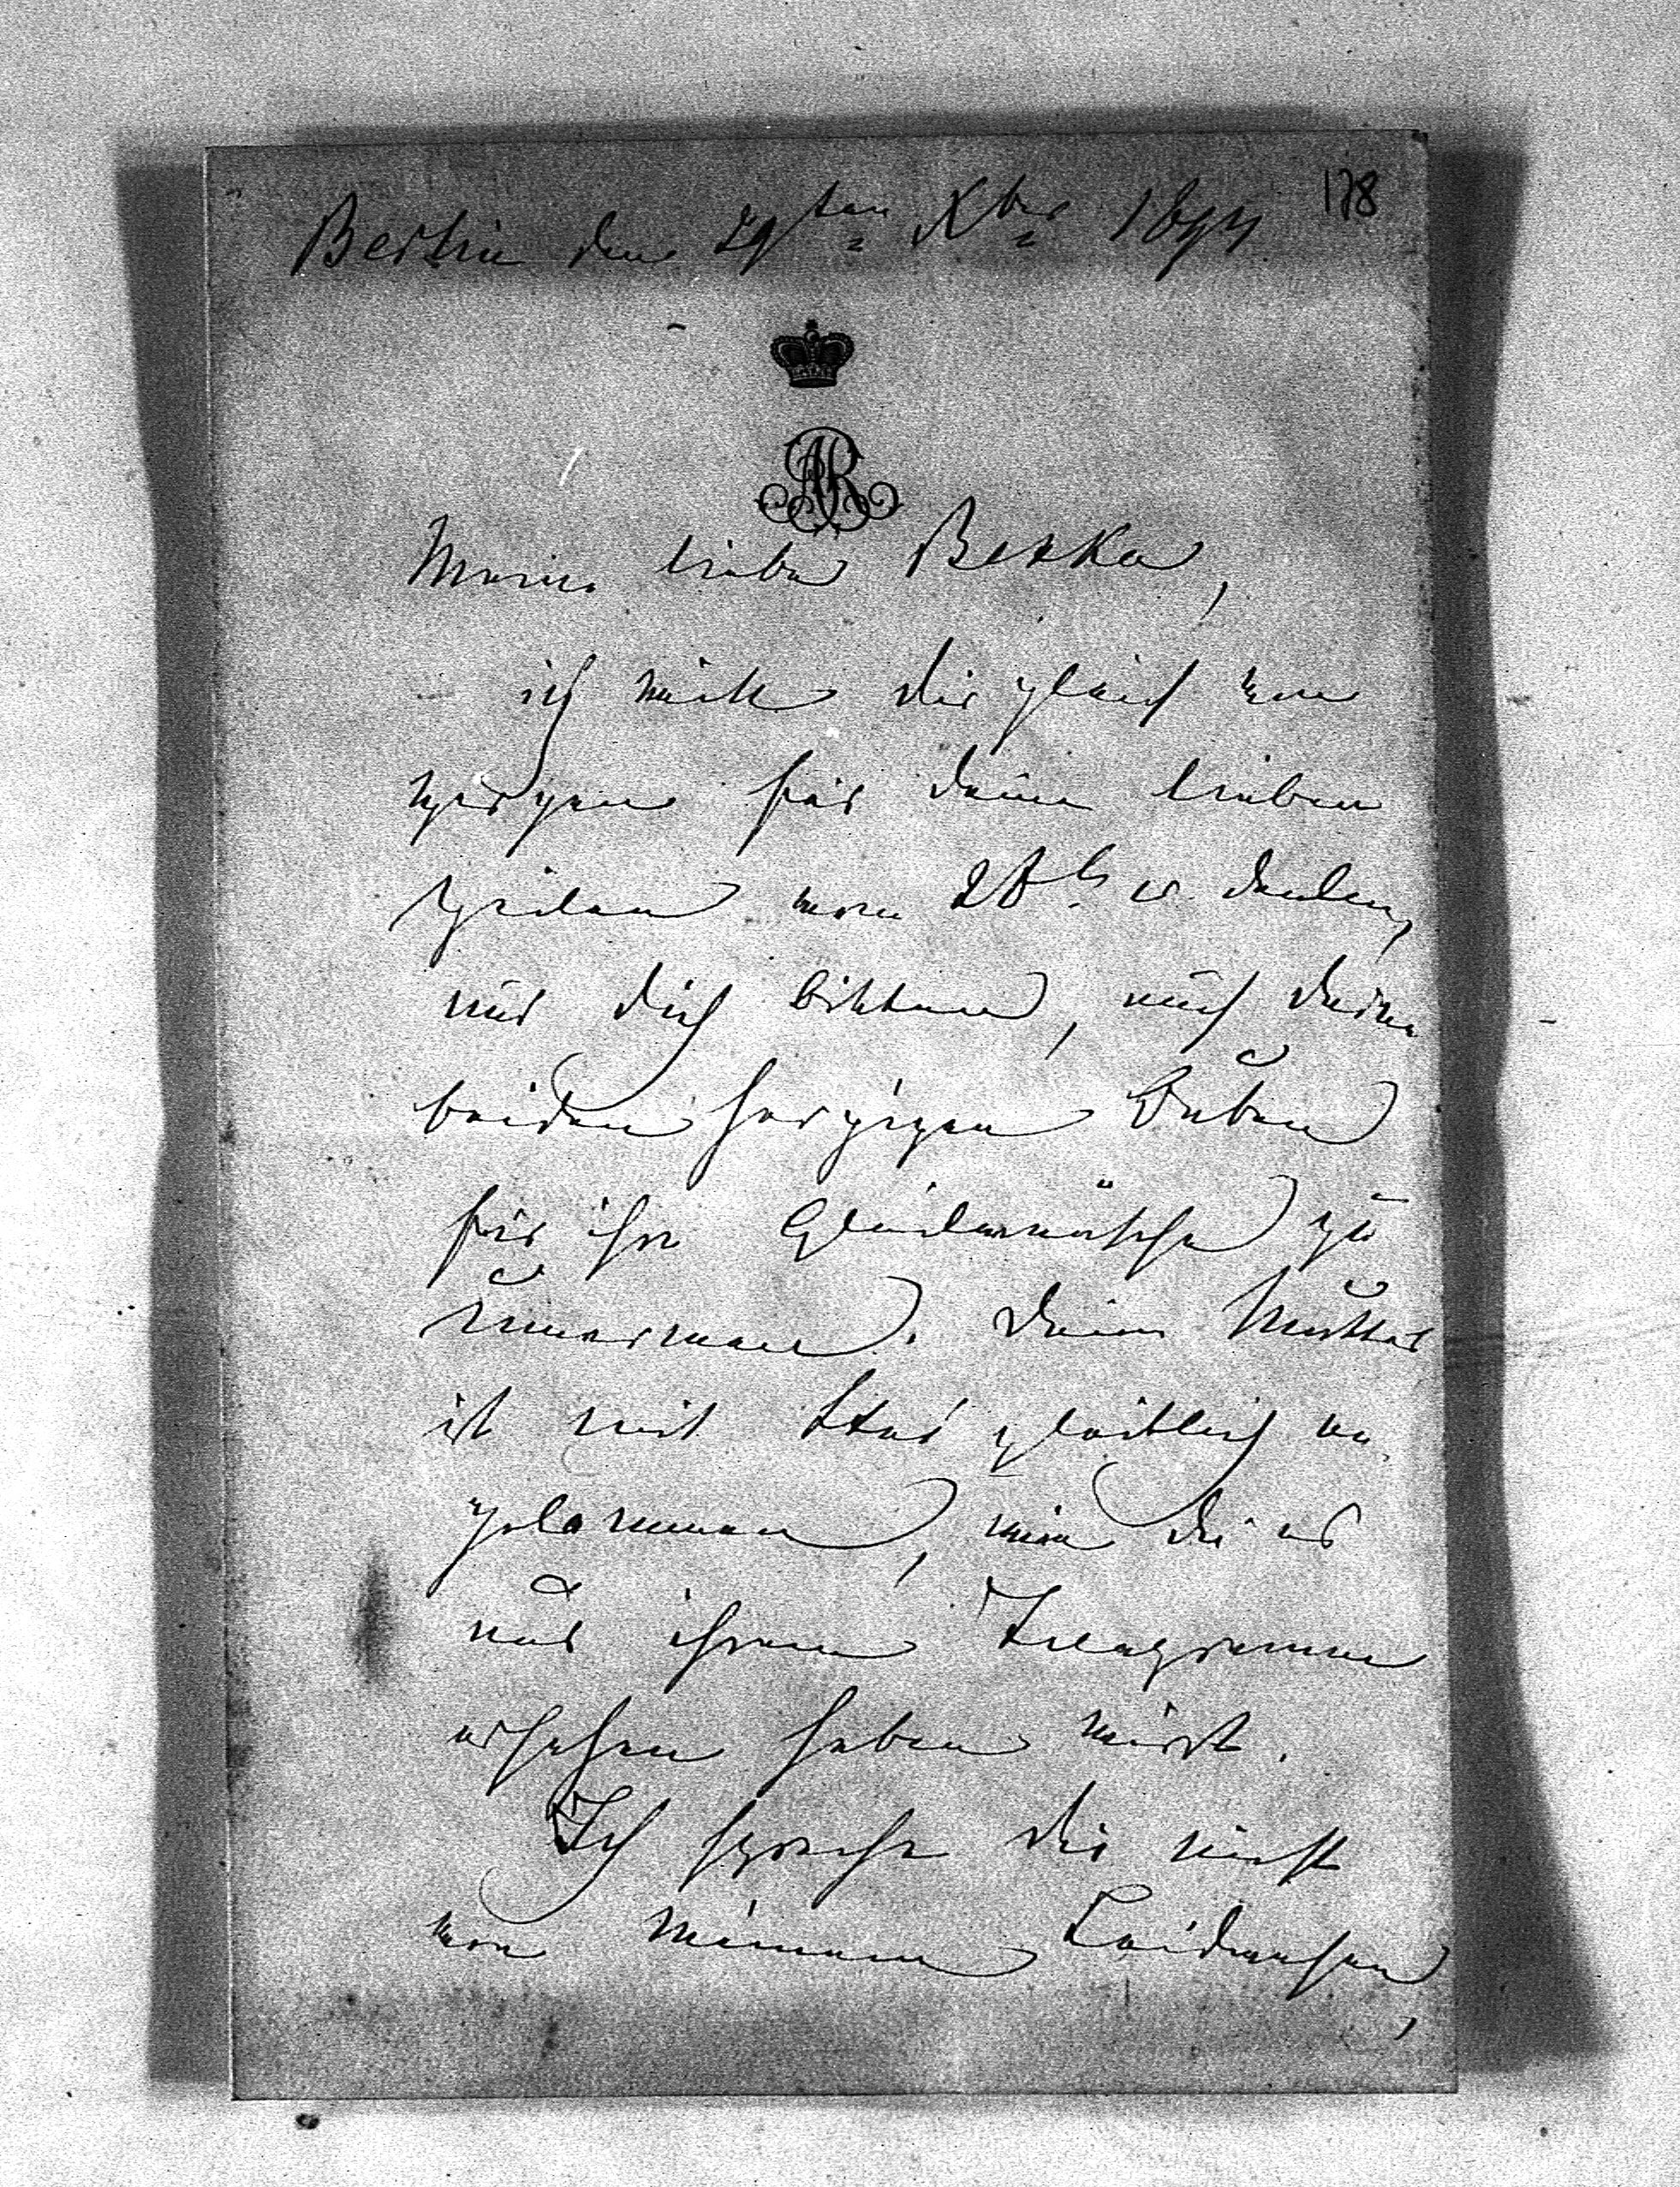 178
Berlin den 29ten Xber 1877
AR
Meine liebe Betka,
ich will dir gleich von
Herzen für deine lieben
Zeilen vom 28t. c. danken,
und dich bitten, auch deine
beiden herzigen Buben
für ihre Glückwünsche zu
umarmen. Deine Mutter
ist mit Stas glücklich an-
gekommen, wie du es
aus ihrem Telegramme
ersehen haben wirst.
Ich spreche dir nicht
von meinem Leidwesen,